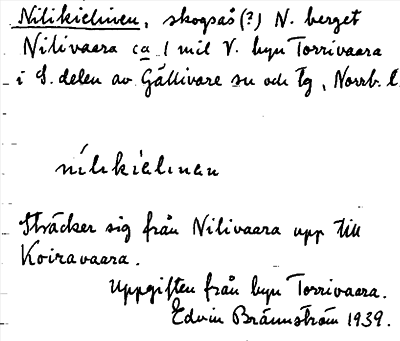 Nilikielinen, skogsås (?) N. berget
Nilivaara ca 1 mil V. byn Torrivaara
i S. delen av Gällivare sn och tg, Norrb. l.
nílikiẹlinen
Sträcker sig från Nilivaara upp till
Koiravaara.
Uppgiften från byn Torrivaara.
Edvin Brännström 1939.